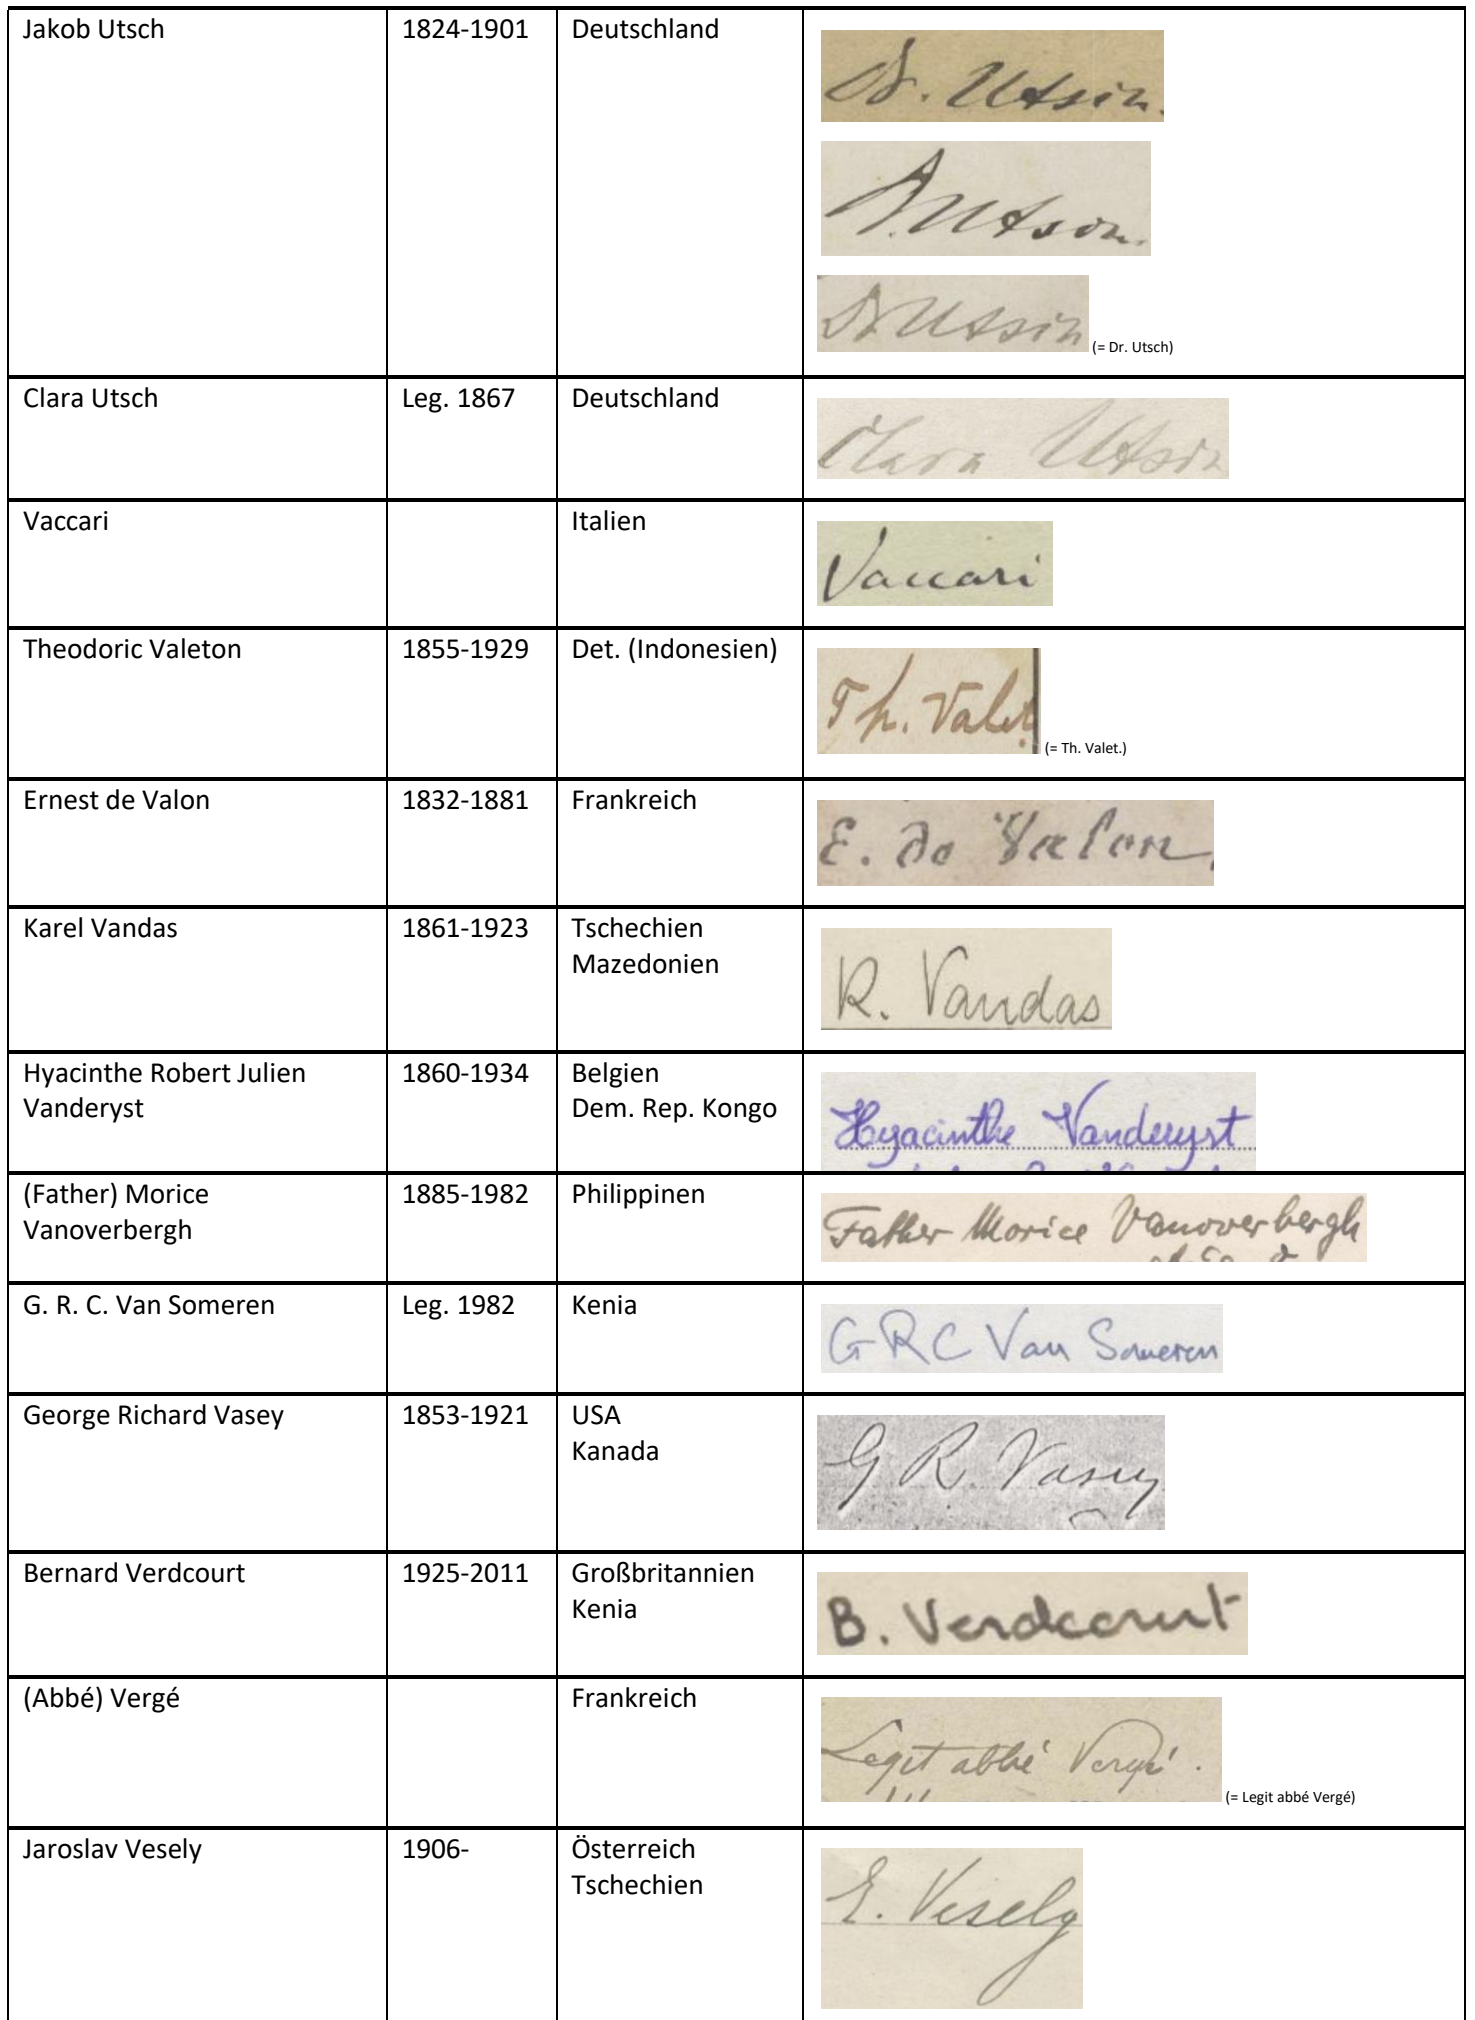 Jakob Utsch 1824-1901 Deutschland
Dr. Utsch.
Dr. Utsch.
Dr Utsch (= Dr. Utsch)
Clara Utsch Leg. 1867 Deutschland
Clara Utsch
Vaccari Italien
Vaccari
Theodoric Valeton 1855-1929 Det. (Indonesien)
Th. Valet. (= Th. Valet.)
Ernest de Valon 1832-1881 Frankreich
E. de Valon.
Karel Vandas 1861-1923 Tschechien
Mazedonien
K. Vandas
Hyacinthe Robert Julien 1860-1934 Belgien
Vanderyst Dem. Rep. Kongo
Hyacinthe Vanderyst
(Father) Morice 1885-1982 Philippinen
Vanoverbergh
Father Morice Vanoverbergh
G. R. C. Van Someren Leg. 1982 Kenia
G R C Van Someren
George Richard Vasey 1853-1921 USA
Kanada
G R. Vasey
Bernard Verdcourt 1925-2011 Großbritannien
Kenia
B. Verdcourt
(Abbé) Vergé Frankreich
Legit abbé Vergé. (= Legit abbé Vergé)
Jaroslav Vesely 1906- Österreich
Tschechien
Vesely